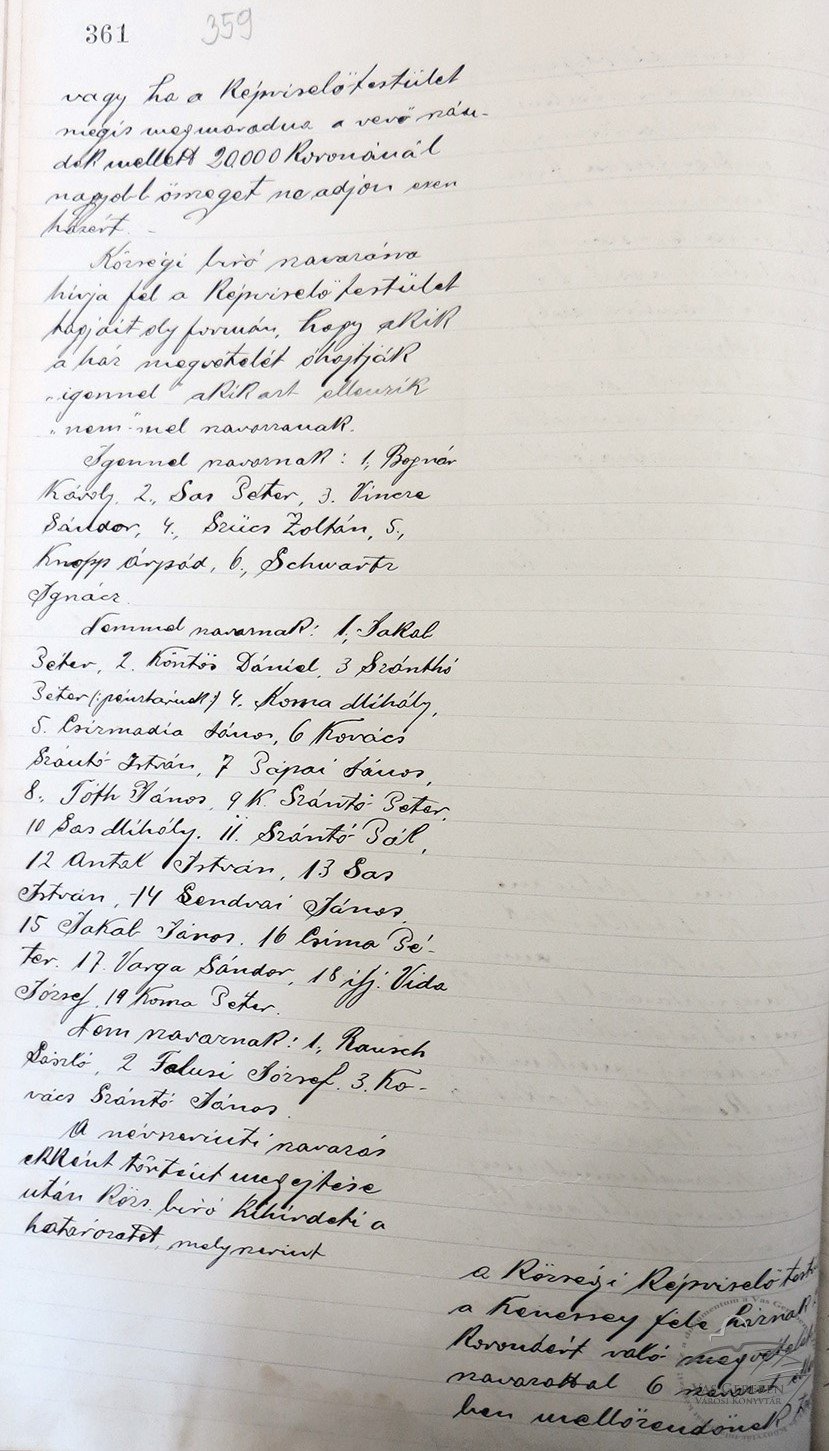 361 359
vagy ha a Képviselőtestület
mégis megmaradna a vevő szán-
dék mellett 20.000 Koronánál
nagyobb összeget ne adjon ezen
házért.
Községi biró szavazásra
hivja fel a Képviselő testület
tagjait oly formán, hogy akik
a ház megvételét óhajtják
"igennel" akik azt ellenzik
"nem"-mel szavazzanak.
Igennel szavaznak: 1, Bognár
Károly, 2., Sas Péter, 3. Vincze
Sándor, 4., Szücs Zoltán, 5,
Knopp Árpád, 6., Schwartz
Ignácz.
Nemmel szavaznak: 1, Jakab
Péter, 2. Köntös Dániel, 3 Szánthó
Péter (:pénztárnok:) 4. Koma Mihály,
5. Csizmadia János, 6 Kovács
Szántó István, 7 Pápai János,
8., Tóth János, 9 K. Szántó Péter,
10 Sas Mihály. 11. Szántó Pál,
12 Antal István, 13 Sas
István, 14 Lendvai János,
15 Jakab János. 16 Csima Pé-
ter. 17. Varga Sándor, 18 ifj. Vida
József, 19 Koma Péter.
Nem szavaznak: 1., Rausch
László, 2 Falusi József. 3. Ko-
vács Szántó János.
A névszerinti szavazás
ekként történt megejtése
után közs. biró kihirdeti a
határozatot, mely szerint
a Községi Képviselő
a Kenessey féle háznak
Koronáért való
szavazattal 6 szavazat
ben mellőzendőnek
VAS GEREBEN
VÁROSI KÖNYVTÁR